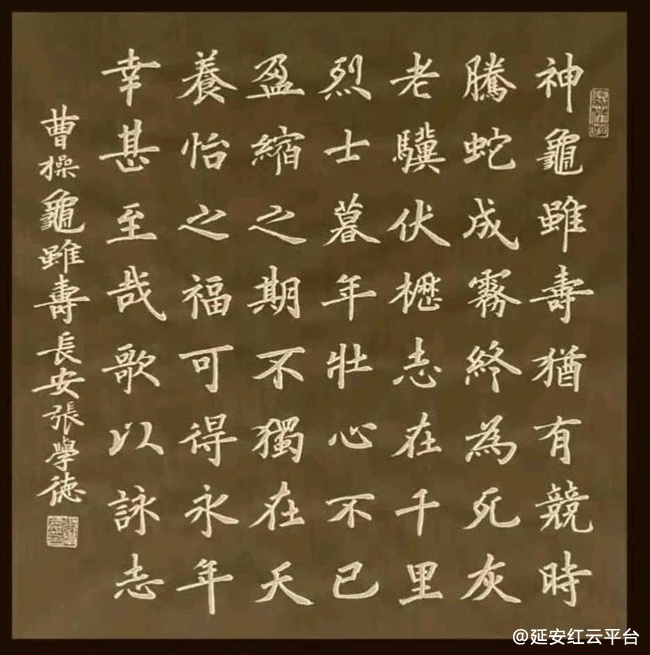 神龜雖壽猶有競時
騰蛇成霧終為死灰
老驥伏櫪志在千里
烈士暮年壯心不已
盈縮之期不獨在天
養怡之福可得永年
幸甚至哉歌以詠志
曹操龜雖壽長安張學德
@延安红云平台